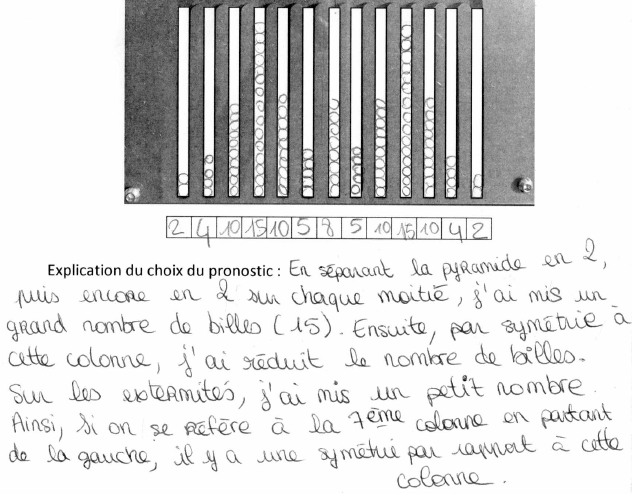 2 4 10 15 10 5 8 5 10 15 10 4 2
Explication du choix du pronostic : En séparant la pyramide en 2,
puis encore en 2 sur chaque moitié, j'ai mis un
grand nombre de billes (15). Ensuite, par symétrie à
cette colonne, j'ai réduit le nombre de billes.
Sur les extermités, j'ai mis un petit nombre.
Ainsi, si on se réfère à la 7ème colonne en partant
de la gauche, il y a une symétrie par rapport à cette
colonne.